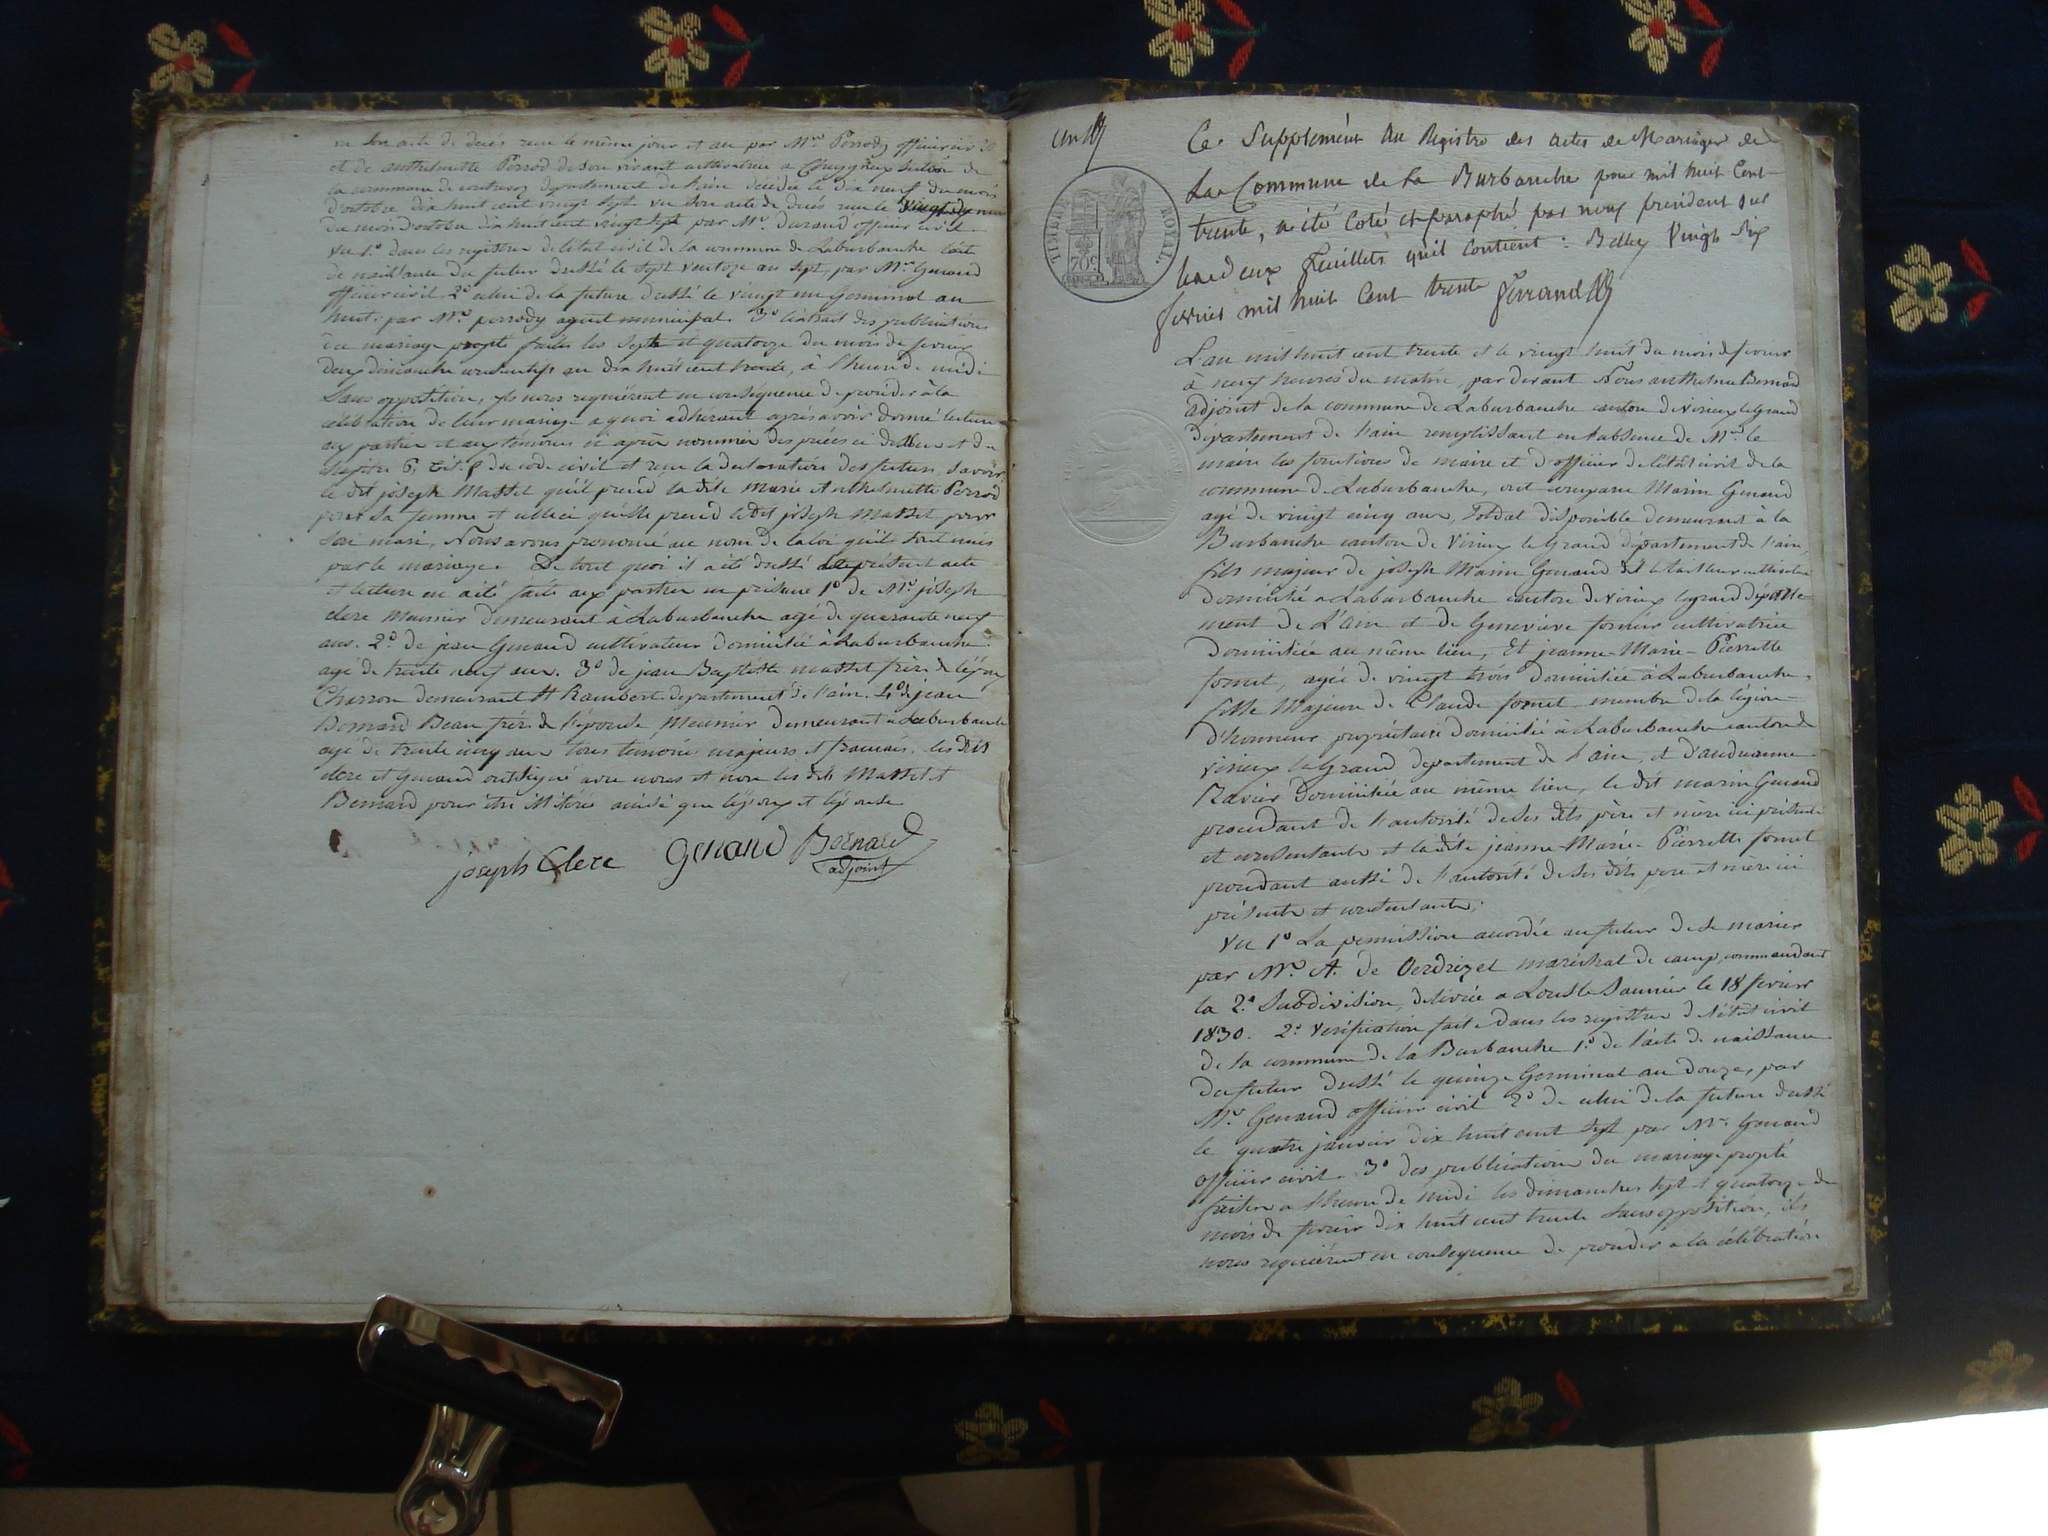 vu son acte de décès reçu le même jour et an par Mr. Perrody officier civil
et de anthelmette Perrod de son vivant cultivatrice a Cheygneux section de
la commune de contrevoz departement de l'ain décédée le dix neuf du mois
d'octobre dix huit cent vingt sept vu son acte de décès reçu le vingt
du mois d'octobre dix huit cent vingt sept par Mr. durand officier civil
vu 1°. dans les registres de l'état civil de la commune de Laburbanche l'acte
de naissance du futur dressé le sept ventoze an sept, par Mr. Genand
officier civil 2° celui de la future dressé le vingt un Germinal an
huit par Mr. perrody agent municipal. 3° l'extrait des publications
du mariage projeté faites les sept et quatorze du mois de fevrier
deux dimanches consécutifs an dix huit cent trente, à l'heure de midi
sans opposition, ils nous requièrent en conséquence de procéder à la
célébration de leur mariage a quoi adhérant après avoir donné lecture
aux parties et aux témoins ci après nommés des pièces ci dessus et du
chapitre 6, tit. 5 du code civil et reçu la declaration des futurs, savoir
le dit joseph Masset qu'il prend la dite marie Anthelmette Perrod
pour sa femme et celleci qu'elle prend le dit joseph Masset pour
son mari, Nous avons prononcé au nom de la loi qu'ils sont unis
par le mariage. De tout quoi il a été dressé le présent acte
et lecture en a été faite aux parties en présence 1° de Mr. joseph
clerc Meunier demeurant à Laburbanche agé de quarante neuf
ans. 2° de jean Genand cultivateur domicilié à Laburbanche
agé de trente neuf ans. 3° de jean Baptiste masset frère de l'époux
Charron demeurant St Rambert departement de l'ain. 4° de jean
Bernard Beau frère de l'épouse, Meunier demeurant à Laburbanche
agé de trente cinq ans tous temoins majeurs et francais. les dits
clerc et Genand ont signé avec nous et non les dits Masset et
Bernard pour être illitérés ainsi que l'époux et l'épouse
joseph Clerc Genand Bernard
adjoint
un
Ce Supplément au Registre des actes de Mariages de
La Commune de La Burbanche pour mil huit Cent
trente, a été Coté et paraphé par nous president sur
les deux feuillets qu'il contient : Belley Vingt Six
fevrier mil huit Cent trente Ferrand
TIMBRE ROYAL.
70c
L'an mil huit cent trente et le vingt huit du mois de fevrier
à neuf heures du matin, par devant Nous anthelme Bernard
adjoint de la commune de Laburbanche canton de virieux le grand
département de l'ain remplissant en l'absence de Mr. le
maire les fonctions de maire et d'officier de l'état civil de la
commune de Laburbanche, ont comparu Marin Genand
agé de vingt cinq ans, soldat disponible demeurant à la
Burbanche canton de Virieux le Grand département de l'ain,
fils majeur de joseph Marin Genand dit le tailleur cultivateur
domicilié a Laburbanche canton de virieux legrand départe
ment de L'ain et de Geneviève fornier cultivatrice
domiciliée au même lieu, Et jeanne-Marie-Pierrette
fornet, agée de vingt trois domiciliée à Laburbanche,
fille Majeure de Claude fornet membre de la légion
d'honneur propriétaire domicilié a Laburbanche canton de
virieux le Grand departement de l'ain, et d'andreanne
Ravier domiciliée au même lieu, le dit marin Genand
procedant de l'autorité de ses dits père et mère ici présents
et consentants et la dite jeanne-Marie-Pierrette fornet
procédant aussi de l'autorité de ses dits pere et mère ici
présents et consentants;
Vu 1° La permission accordée au futur de se marier
par Mr. A. de Verdrizet maréchal de camp, commandant
la 2e. Subdivision, delivrée a Lons le Saunier le 18 fevrier
1830. 2°. Verification faite dans les registres de l'état civil
de la commune de la Burbanche 1°. de l'acte de naissance
du futur dressé le quinze Germinal an Douze, par
Mr. Genand officier civil 2° de celui de la future dressé
le quatre janvier dix huit cent sept par Mr. Genand
officier civil. 3° des publications du mariage projeté
faites a l'heure de midi les dimanches sept et quatorze du
mois de fevrier dix huit cent trente sans opposition, ils
nous requièrent en consequence de proceder a la célébration